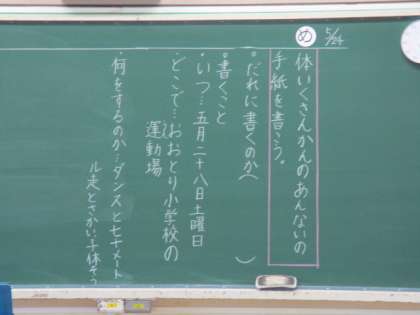 5/24
め
体いくさんかんのあんないの
手紙を書こう。
・だれに書くのか(　　　)
・書くこと
・いつ…五月二十八日土曜日
・どこで…おおとり小学校の
運動場
・何をするのか…ダンスと七十メート
ル走とさかい子体そう